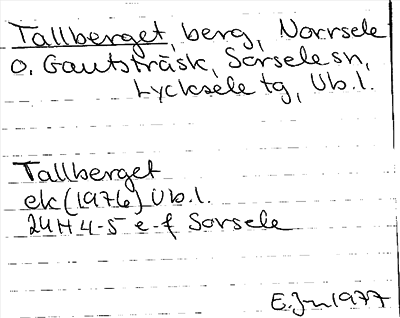 Tallberget, berg, Norrsele
o. Gautsträsk, Sorsele sn,
Lycksele tg, Vb.l.
Tallberget
ek (1976) Vb.l.
24H 4-5 e-f Sorsele
E. Jn 1977